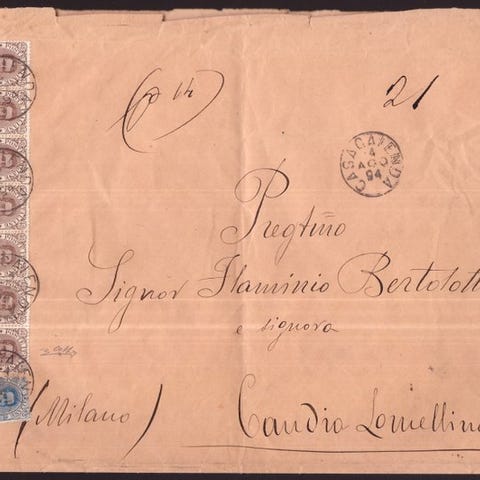 21
CASACALENDA
4
AGO
94
Pregtiño
Signor Flaminio Bertolott
e signora
(Milano)
Candia Lomellina